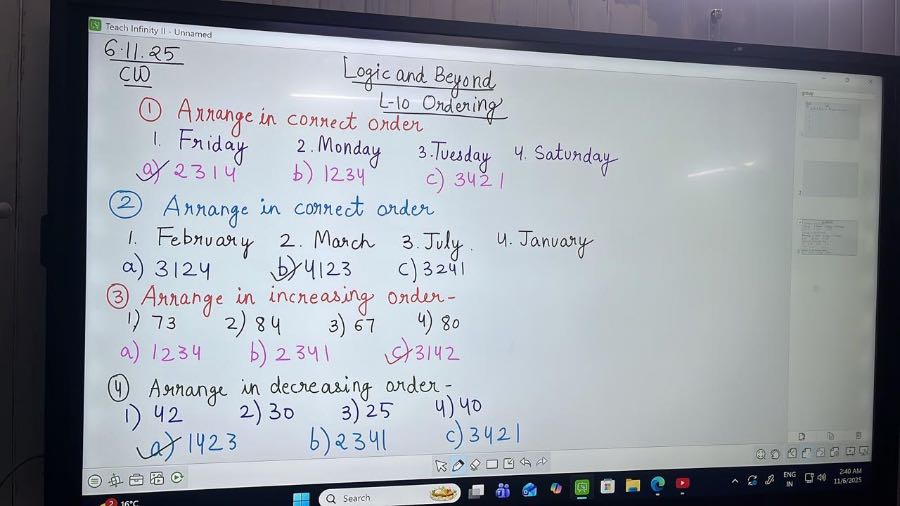 Teach Infinity II - Unnamed
6.11.25
CW
Logic and Beyond
L-10 Ordering
① Arrange in correct order
1. Friday 2. Monday 3. Tuesday 4. Saturday
a) 2314 b) 1234 c) 3421
② Arrange in correct order
1. February 2. March 3. July. 4. January
a) 3124 b) 4123 c) 3241
③ Arrange in increasing order-
1) 73 2) 84 3) 67 4) 80
a) 1234 b) 2341 c) 3142
④ Arrange in decreasing order-
1) 42 2) 30 3) 25 4) 40
a) 1423 b) 2341 c) 3421
16°C
Search
ENG
IN
2:40 AM
11/6/2025